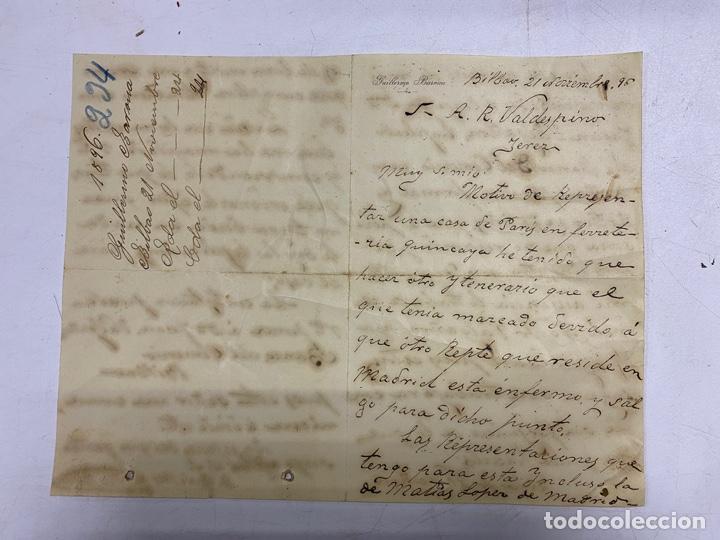 234
1896.
Guillermo Barona
Bilbao 21 Noviembre
Rda el — — 24
Cda el — — 24
Guillermo Barona
Bilbao, 21 Noviembre, 96
S. A. R. Valdespino
Jerez
Muy s. mio:
Motivo de Represen-
tar una casa de París en ferrete-
ria quincaya he tenido que
hacer otro ytenerario que el
que tenia marcado devido, á
que otro Repte que reside en
Madrid esta enfermo, y sal
go para dicho punto.
Las Representaciones que
tengo para esta Yncluso, la
de Matias Lopez de Madrid
todocoleccion.net